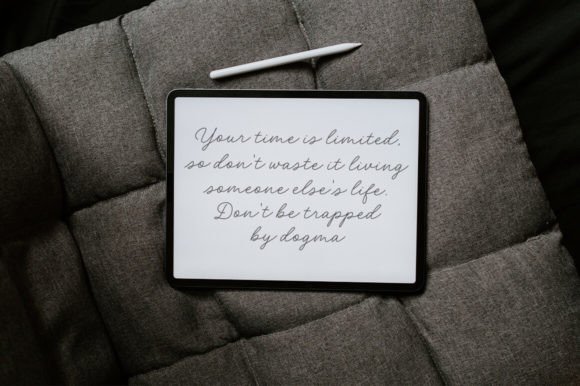 Your time is limited,
so don't waste it living
someone else's life.
Don't be trapped
by dogma